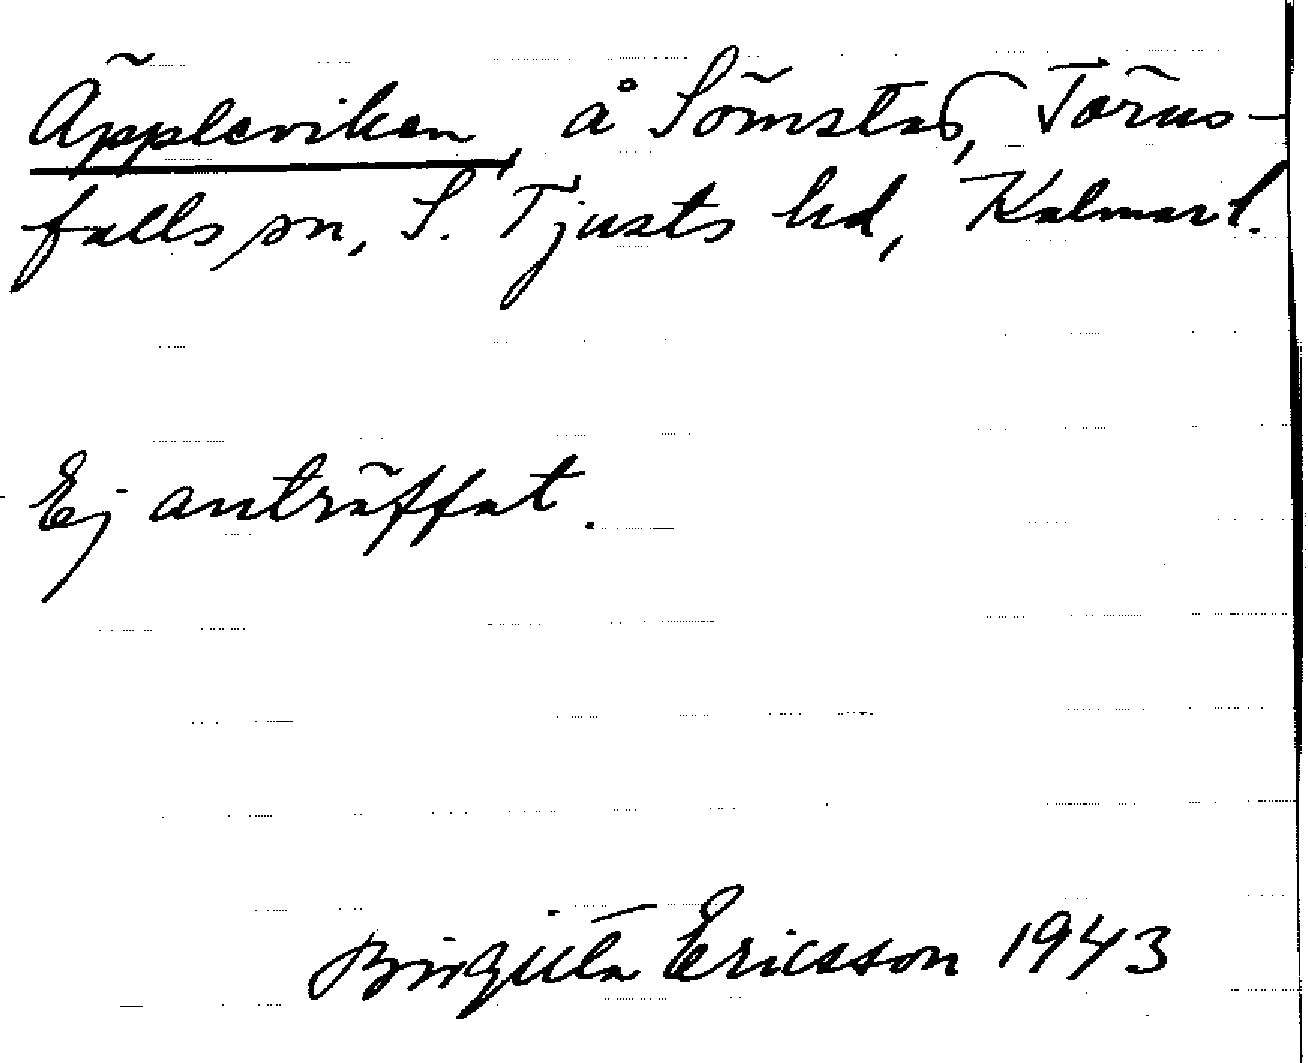 Äppleviken, å Sömstad, Törns-
falls sn, S. Tjusts hd, Kalmar l.
Ej anträffat.
Birgitta Ericsson 1943